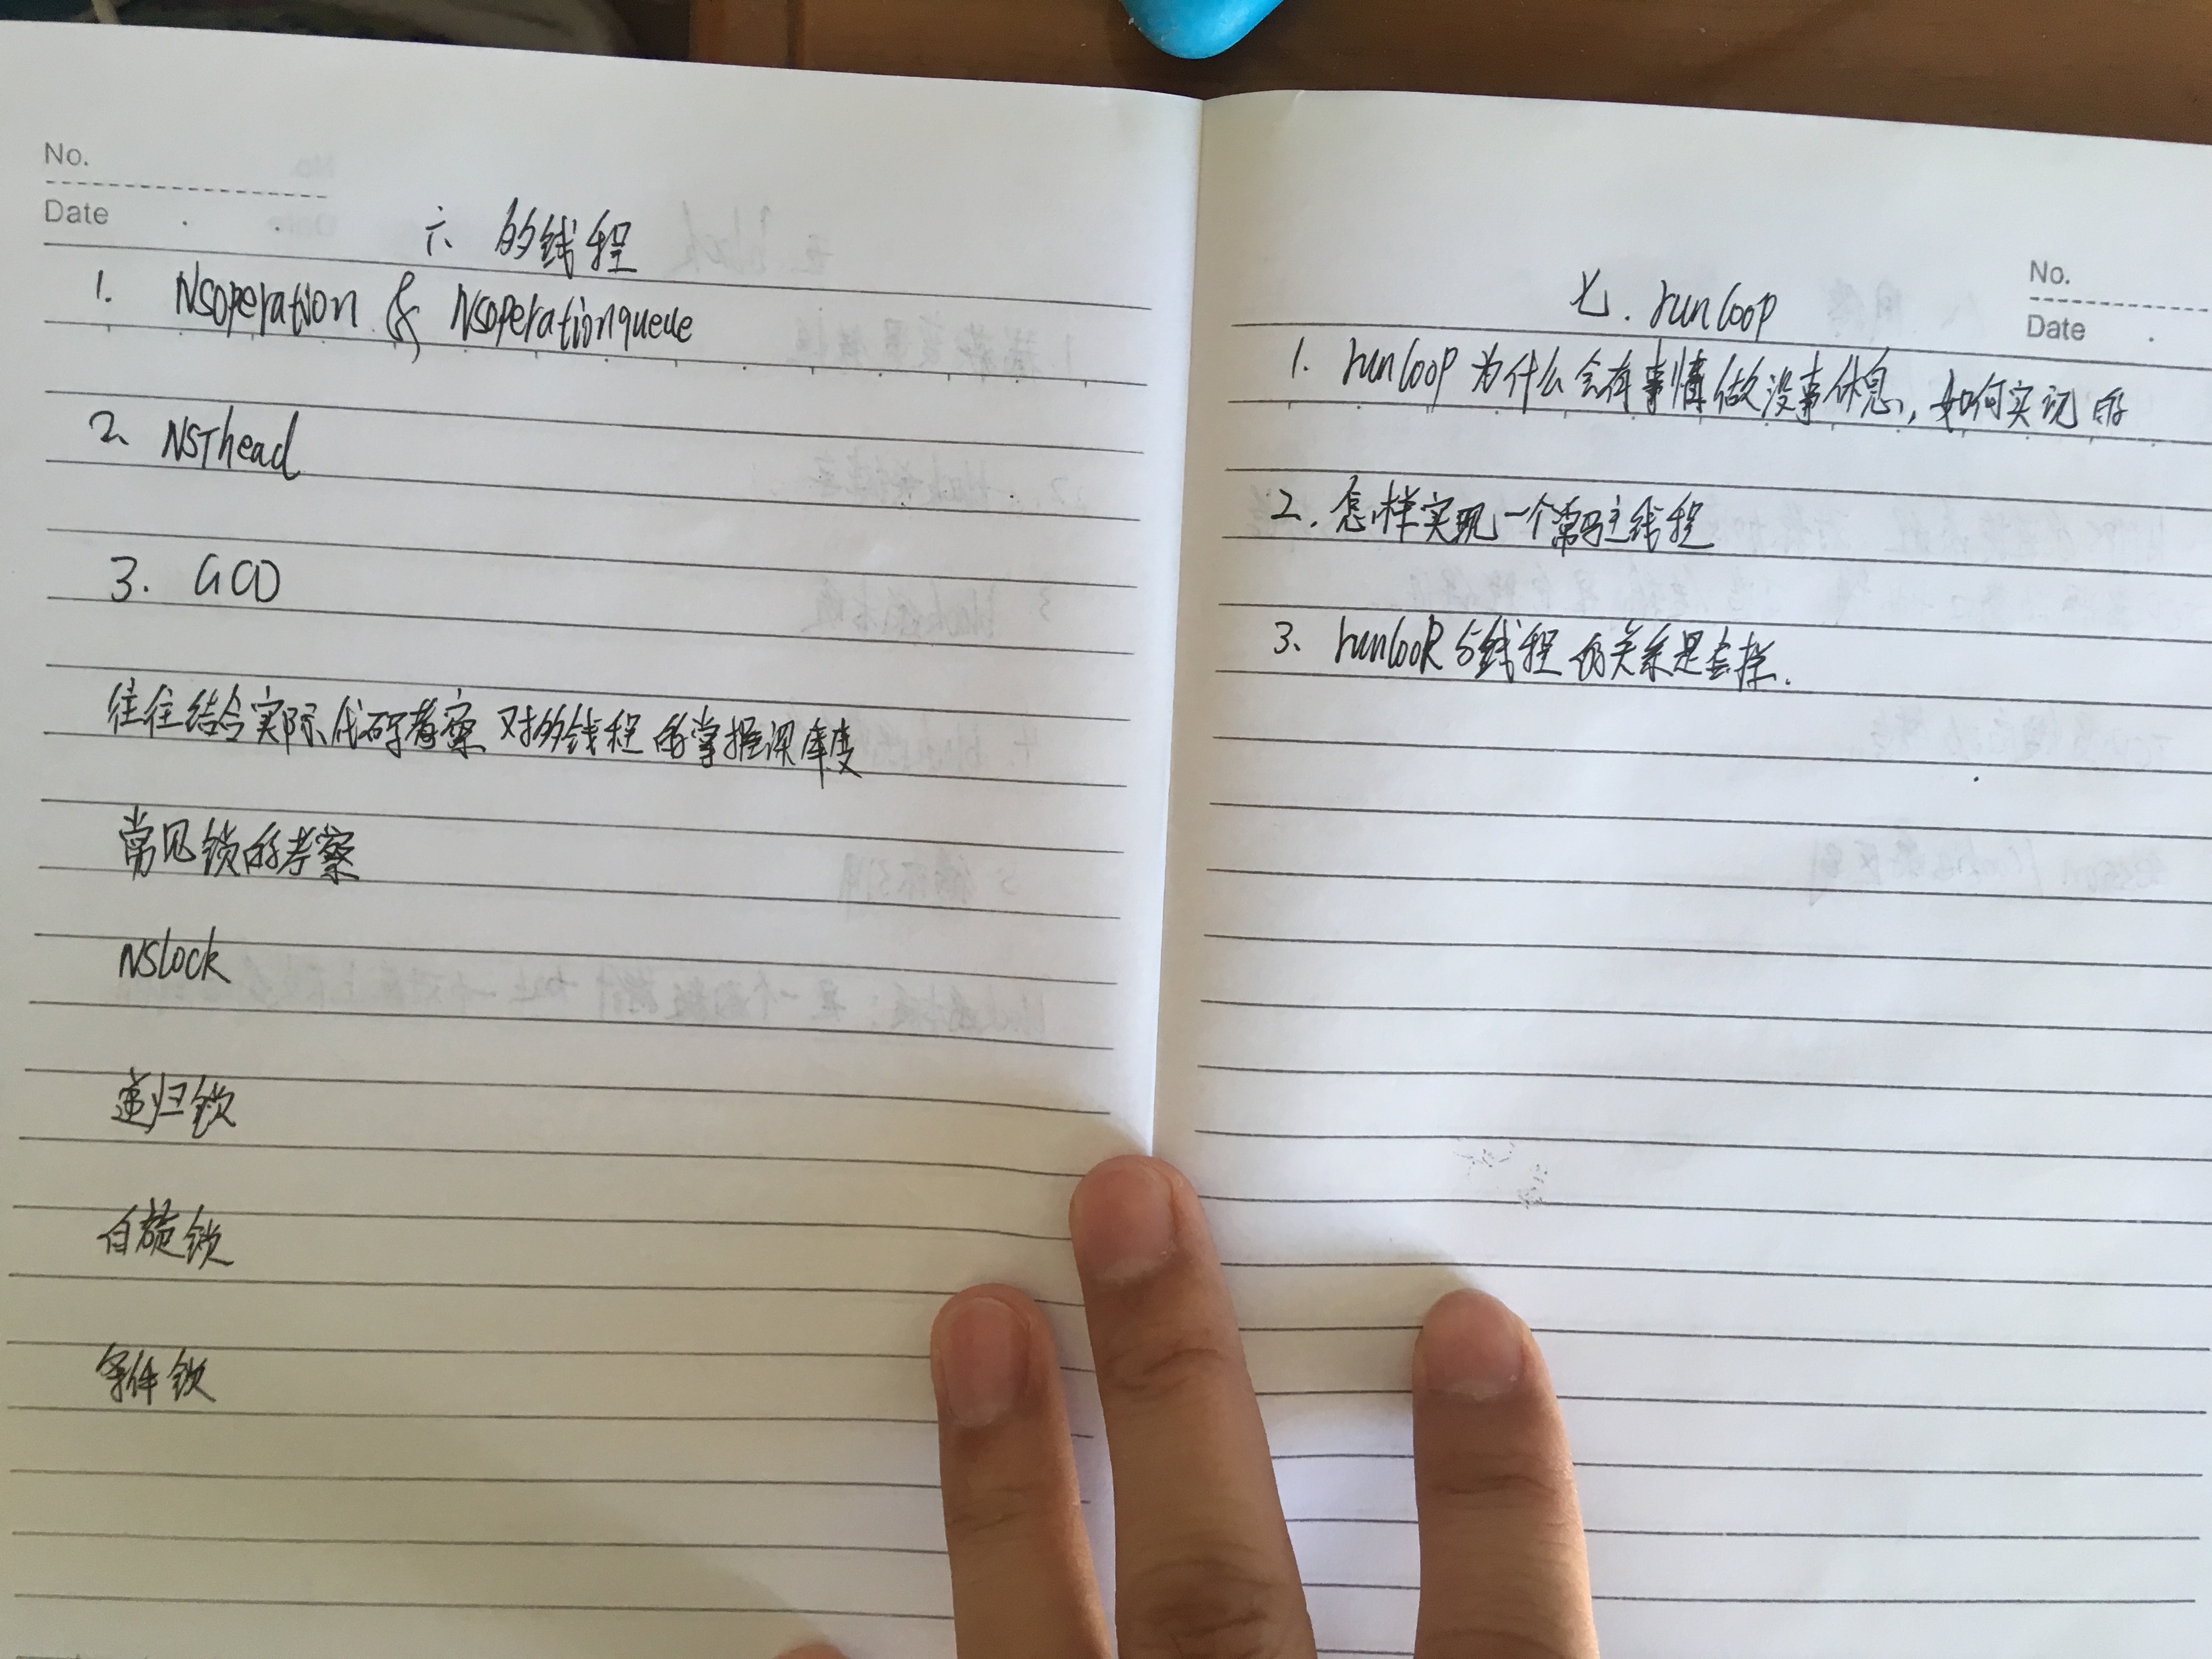 No.
Date
六、多线程
1. NSoperation & NSoperationqueue
2、NSThead
3. GCD
往往结合实际代码考察 对多线程的掌握深度
常见锁的考察
NSlock
递归锁
自旋锁
条件锁
No.
Date
七. runloop
1. runloop 为什么会有事情做没事休息, 如何实现的
2. 怎样实现一个常驻线程
3、runloop 与线程的关系是怎样.